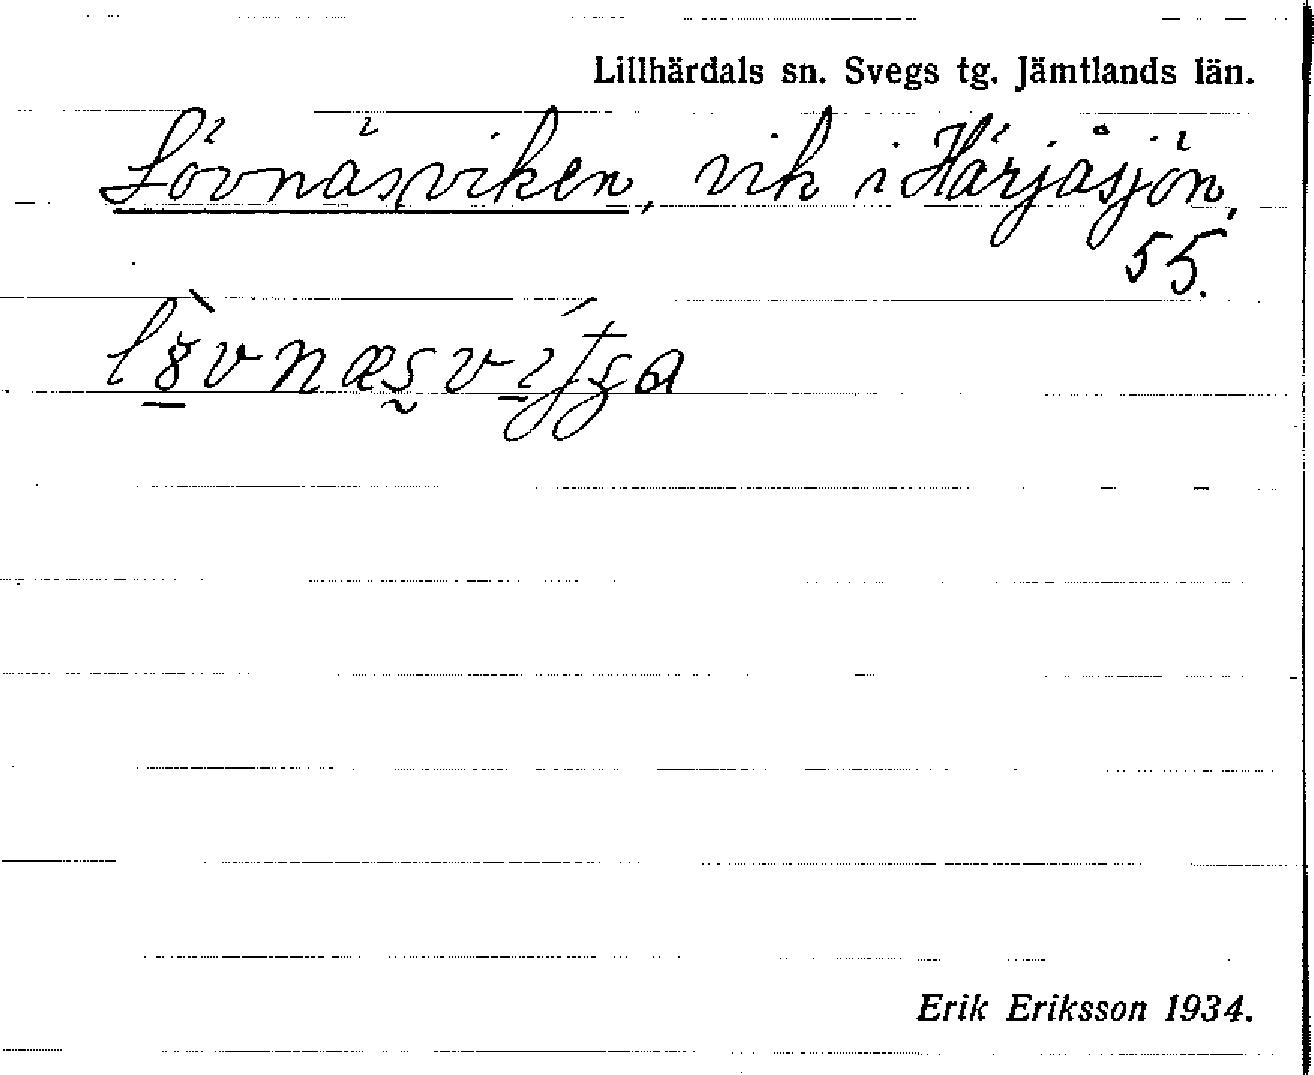 Lillhärdals sn. Svegs tg. Jämtlands län.
Lövnäsviken, vik i Härjåsjön,
55.
Erik Eriksson 1934.